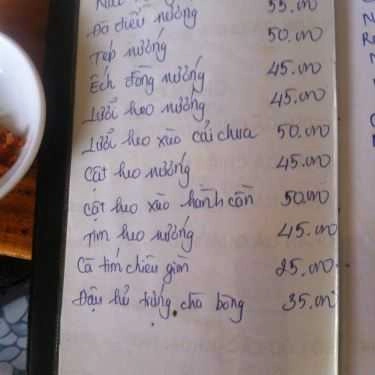 55.000
Đà điểu nướng 50.000
Tép nướng 45.000
Ếch đồng nướng 45.000
Lưỡi heo nướng
Lưỡi heo xào cải chua 50.000
Cật heo nướng 45.000
Cật heo xào hành cần 50.000
Tim heo nướng 45.000
Cà tím chiên giòn 25.000
Đậu hủ trứng chà bông 35.000